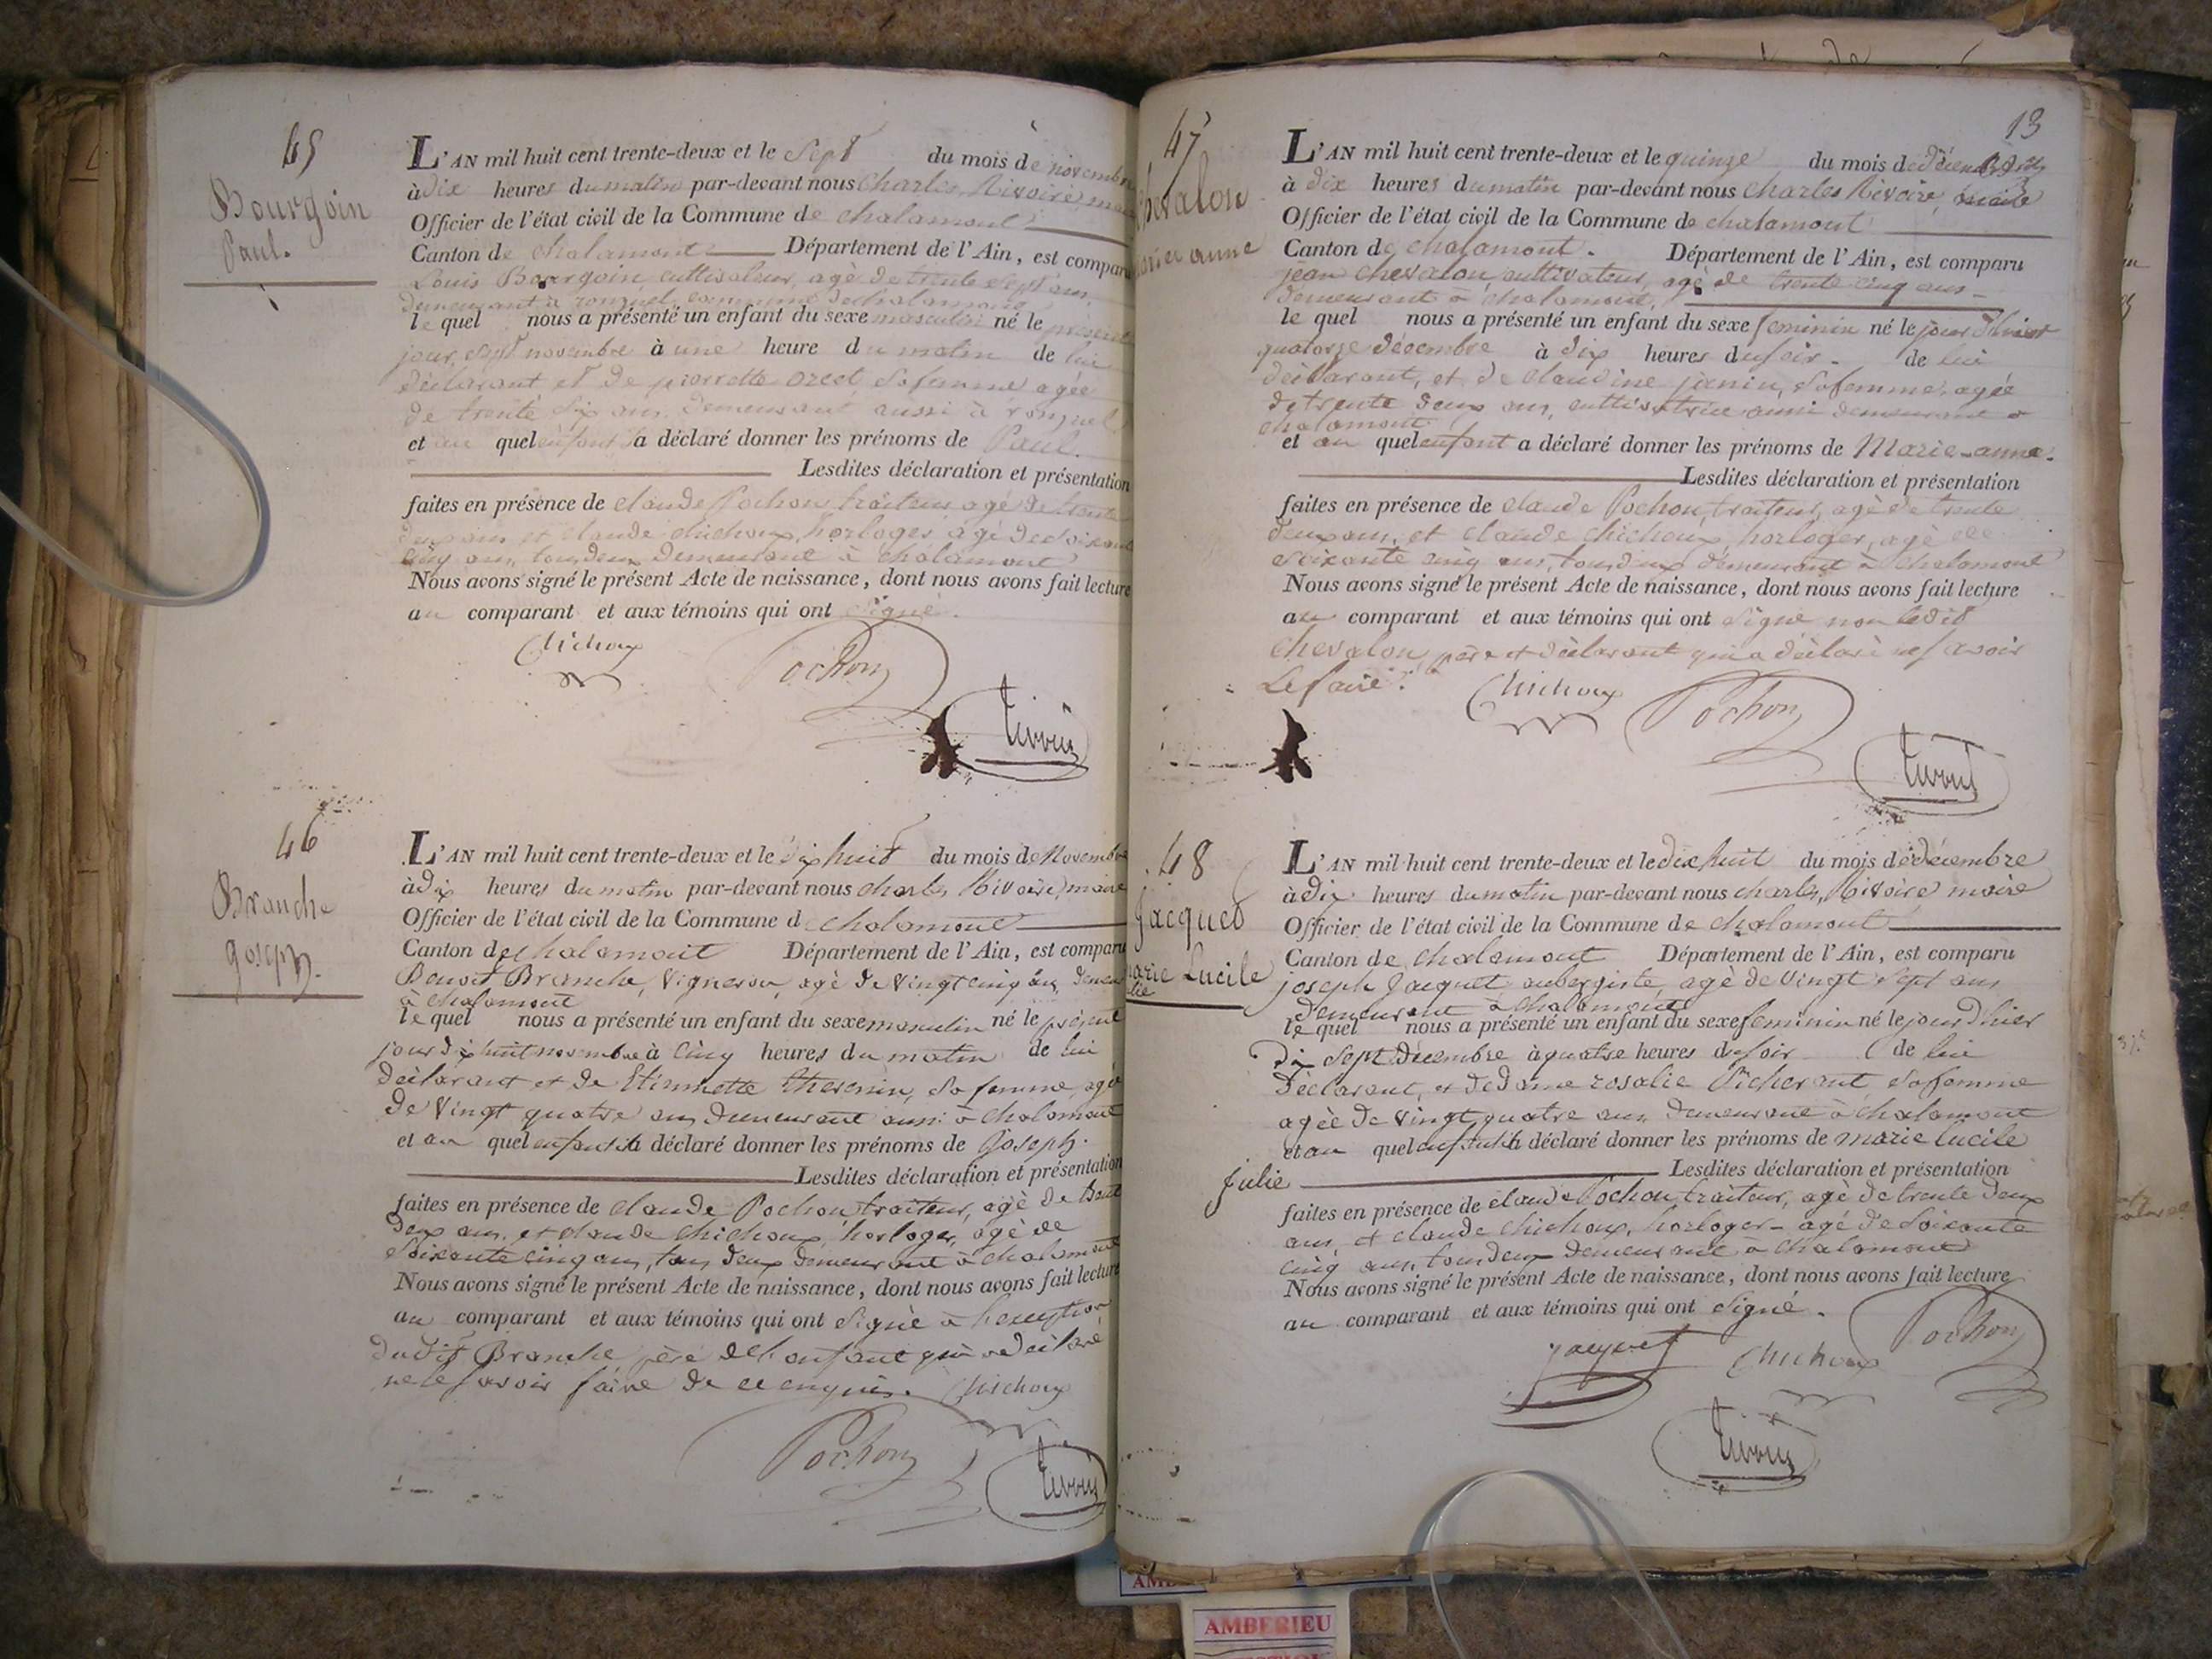 45
Bourgoin
Paul.
L'AN mil huit cent trente-deux et le Sept du mois de novembre
à dix heures du matin par-devant nous Charles Rivoire, maire
Officier de l'état civil de la Commune de chalamont
Canton de chalamont Département de l'Ain, est comparu
Louis Bourgoin, cultivateur, agé de trente sept ans,
demeurant à ronzuel, commune de chalamont
le quel nous a présenté un enfant du sexe masculin né le présent
jour, sept novembre à une heure du matin de lui
déclarant et de pierrette orcet sa femme agée
de trente six ans, demeurant aussi à ronzuel
et au quel enfant il a déclaré donner les prénoms de Paul.
Lesdites déclaration et présentation
faites en présence de claude Pochon traiteur agé de trente
deux ans et claude chichoux, horloger, agé de soixante
cinq ans, tous deux demeurant à chalamont
Nous avons signé le présent Acte de naissance, dont nous avons fait lecture
au comparant et aux témoins qui ont signé.
Chichoux
Pochon
Rivoire
46
Branche
Joseph.
L'AN mil huit cent trente-deux et le dix huit du mois de Novembre
à dix heures du matin par-devant nous charles Rivoire, maire
Officier de l'état civil de la Commune d chalamont
Canton de chalamont Département de l'Ain, est comparu
Benoit Branche, Vigneron, agé de vingt cinq ans, demeurant
à chalamont
le quel nous a présenté un enfant du sexe masculin né le présent
jour dix huit novembre à cinq heures du matin de lui
déclarant et de Etiennette Thevenin, sa femme, agée
de vingt quatre ans demeurant aussi à chalamont
et au quel enfant il a déclaré donner les prénoms de Joseph.
Lesdites déclaration et présentation
faites en présence de claude Pochon traiteur, agé de trente
deux ans, et claude chichoux, horloger, agé de
soixante cinq ans, tous deux demeurant à chalamont
Nous avons signé le présent Acte de naissance, dont nous avons fait lecture
au comparant et aux témoins qui ont signé à l'exception
dudit Branche, père de l'enfant qui a déclaré
ne le savoir faire de ce enquis. Chichoux
Pochon
Rivoire
13
47
chevalon
marie anne
L'AN mil huit cent trente-deux et le quinze du mois de décembre
à dix heures du matin par-devant nous Charles Rivoire, maire
Officier de l'état civil de la Commune de chalamont
Canton de chalamont. Département de l'Ain, est comparu
jean chevalon, cultivateur, agé de trente cinq ans
demeurant à chalamont,
le quel nous a présenté un enfant du sexe feminin né le jour d'hier
quatorze décembre à dix heures du soir. de lui
déclarant, et de claudine janin, sa femme, agée
de trente deux ans, cultivatrice aussi demeurant à
chalamont
et au quel enfant a déclaré donner les prénoms de Marie-anne.
Lesdites déclaration et présentation
faites en présence de claude Pochon, traiteur, agé de trente
deux ans, et claude chichoux, horloger, agé de
soixante cinq ans, tous deux demeurant à chalamont
Nous avons signé le présent Acte de naissance, dont nous avons fait lecture
au comparant et aux témoins qui ont signé non ledit
chevalon, père et déclarant qui a déclaré ne savoir
le faire.
Chichoux
Pochon
Rivoire
48
Jacquet
marie Lucile
L'AN mil huit cent trente-deux et le dix huit du mois de décembre
à dix heures du matin par-devant nous charles Rivoire maire
Officier de l'état civil de la Commune de chalamont
Canton de chalamont Département de l'Ain, est comparu
joseph Jacquet, aubergiste, agé de vingt sept ans
demeurant à chalamont
le quel nous a présenté un enfant du sexe feminin né le jour d'hier
dix sept décembre à quatre heures du soir de lui
déclarant, et de dame rosalie Picherant, sa femme
agée de vingt quatre ans, demeurant à chalamont
et au quel enfant il a déclaré donner les prénoms de marie lucile
julie
Lesdites déclaration et présentation
faites en présence de claude Pochon, traiteur, agé de trente deux
ans, et claude chichoux, horloger, agé de soixante
cinq ans, tous deux demeurant à chalamont
Nous avons signé le présent Acte de naissance, dont nous avons fait lecture
au comparant et aux témoins qui ont signé.
Jacquet
Chichoux
Pochon
Rivoire
AMBERIEU